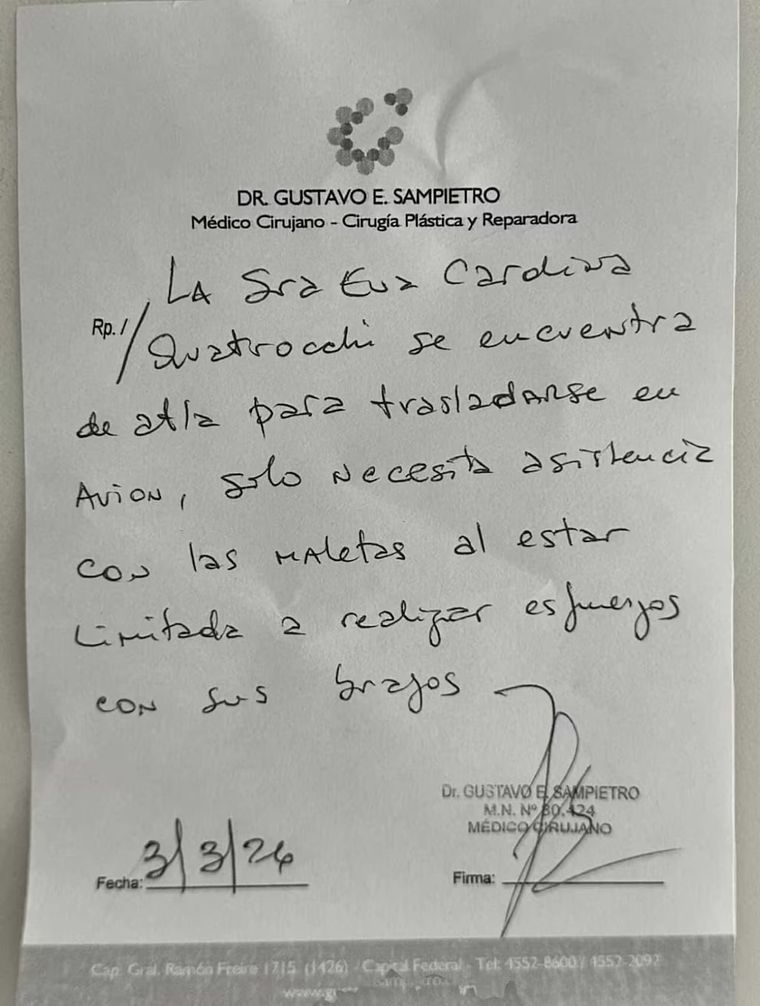 DR. GUSTAVO E. SAMPIETRO
Médico Cirujano - Cirugía Plástica y Reparadora
LA Sra Eva Cardina
Rp./ Quatrocchi se encuentra
de alta para trasladarse en
AVION, solo Necesita asistencia
con las MAletas al estar
Limitada a realizar esfuerzos
con sus brazos
Dr. GUSTAVO E. SAMPIETRO
M.N. Nº 80.424
MÉDICO CIRUJANO
Fecha: 3/3/26
Firma:
Cap. Gral. Ramón Freire 1715 (1426) - Capital Federal - Tel: 4552-8600 / 4552-2092